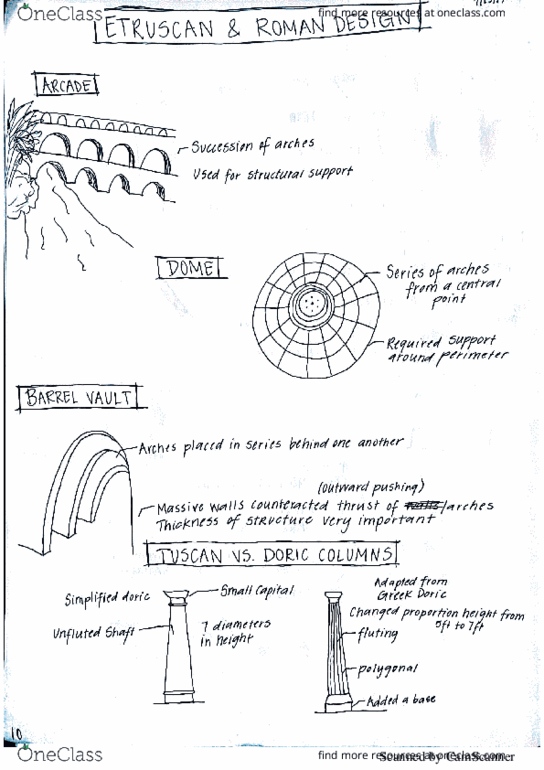 OneClass
find more resources at oneclass.com
ETRUSCAN & ROMAN DESIGN
ARCADE
Succession of arches
Used for structural support
DOME
Series of arches
from a central
point
Required support
around perimeter
BARREL VAULT
Arches placed in series behind one another
(outward pushing)
Massive walls counteracted thrust of arches
Thickness of structure very important
TUSCAN VS. DORIC COLUMNS
Simplified doric
Small Capital
Unfluted Shaft
7 diameters
in height
Adapted from
Greek Doric
Changed proportion height from
5ft to 7ft
fluting
polygonal
Added a base
10
OneClass
find more resources at oneclass.com
Scanned by CamScanner